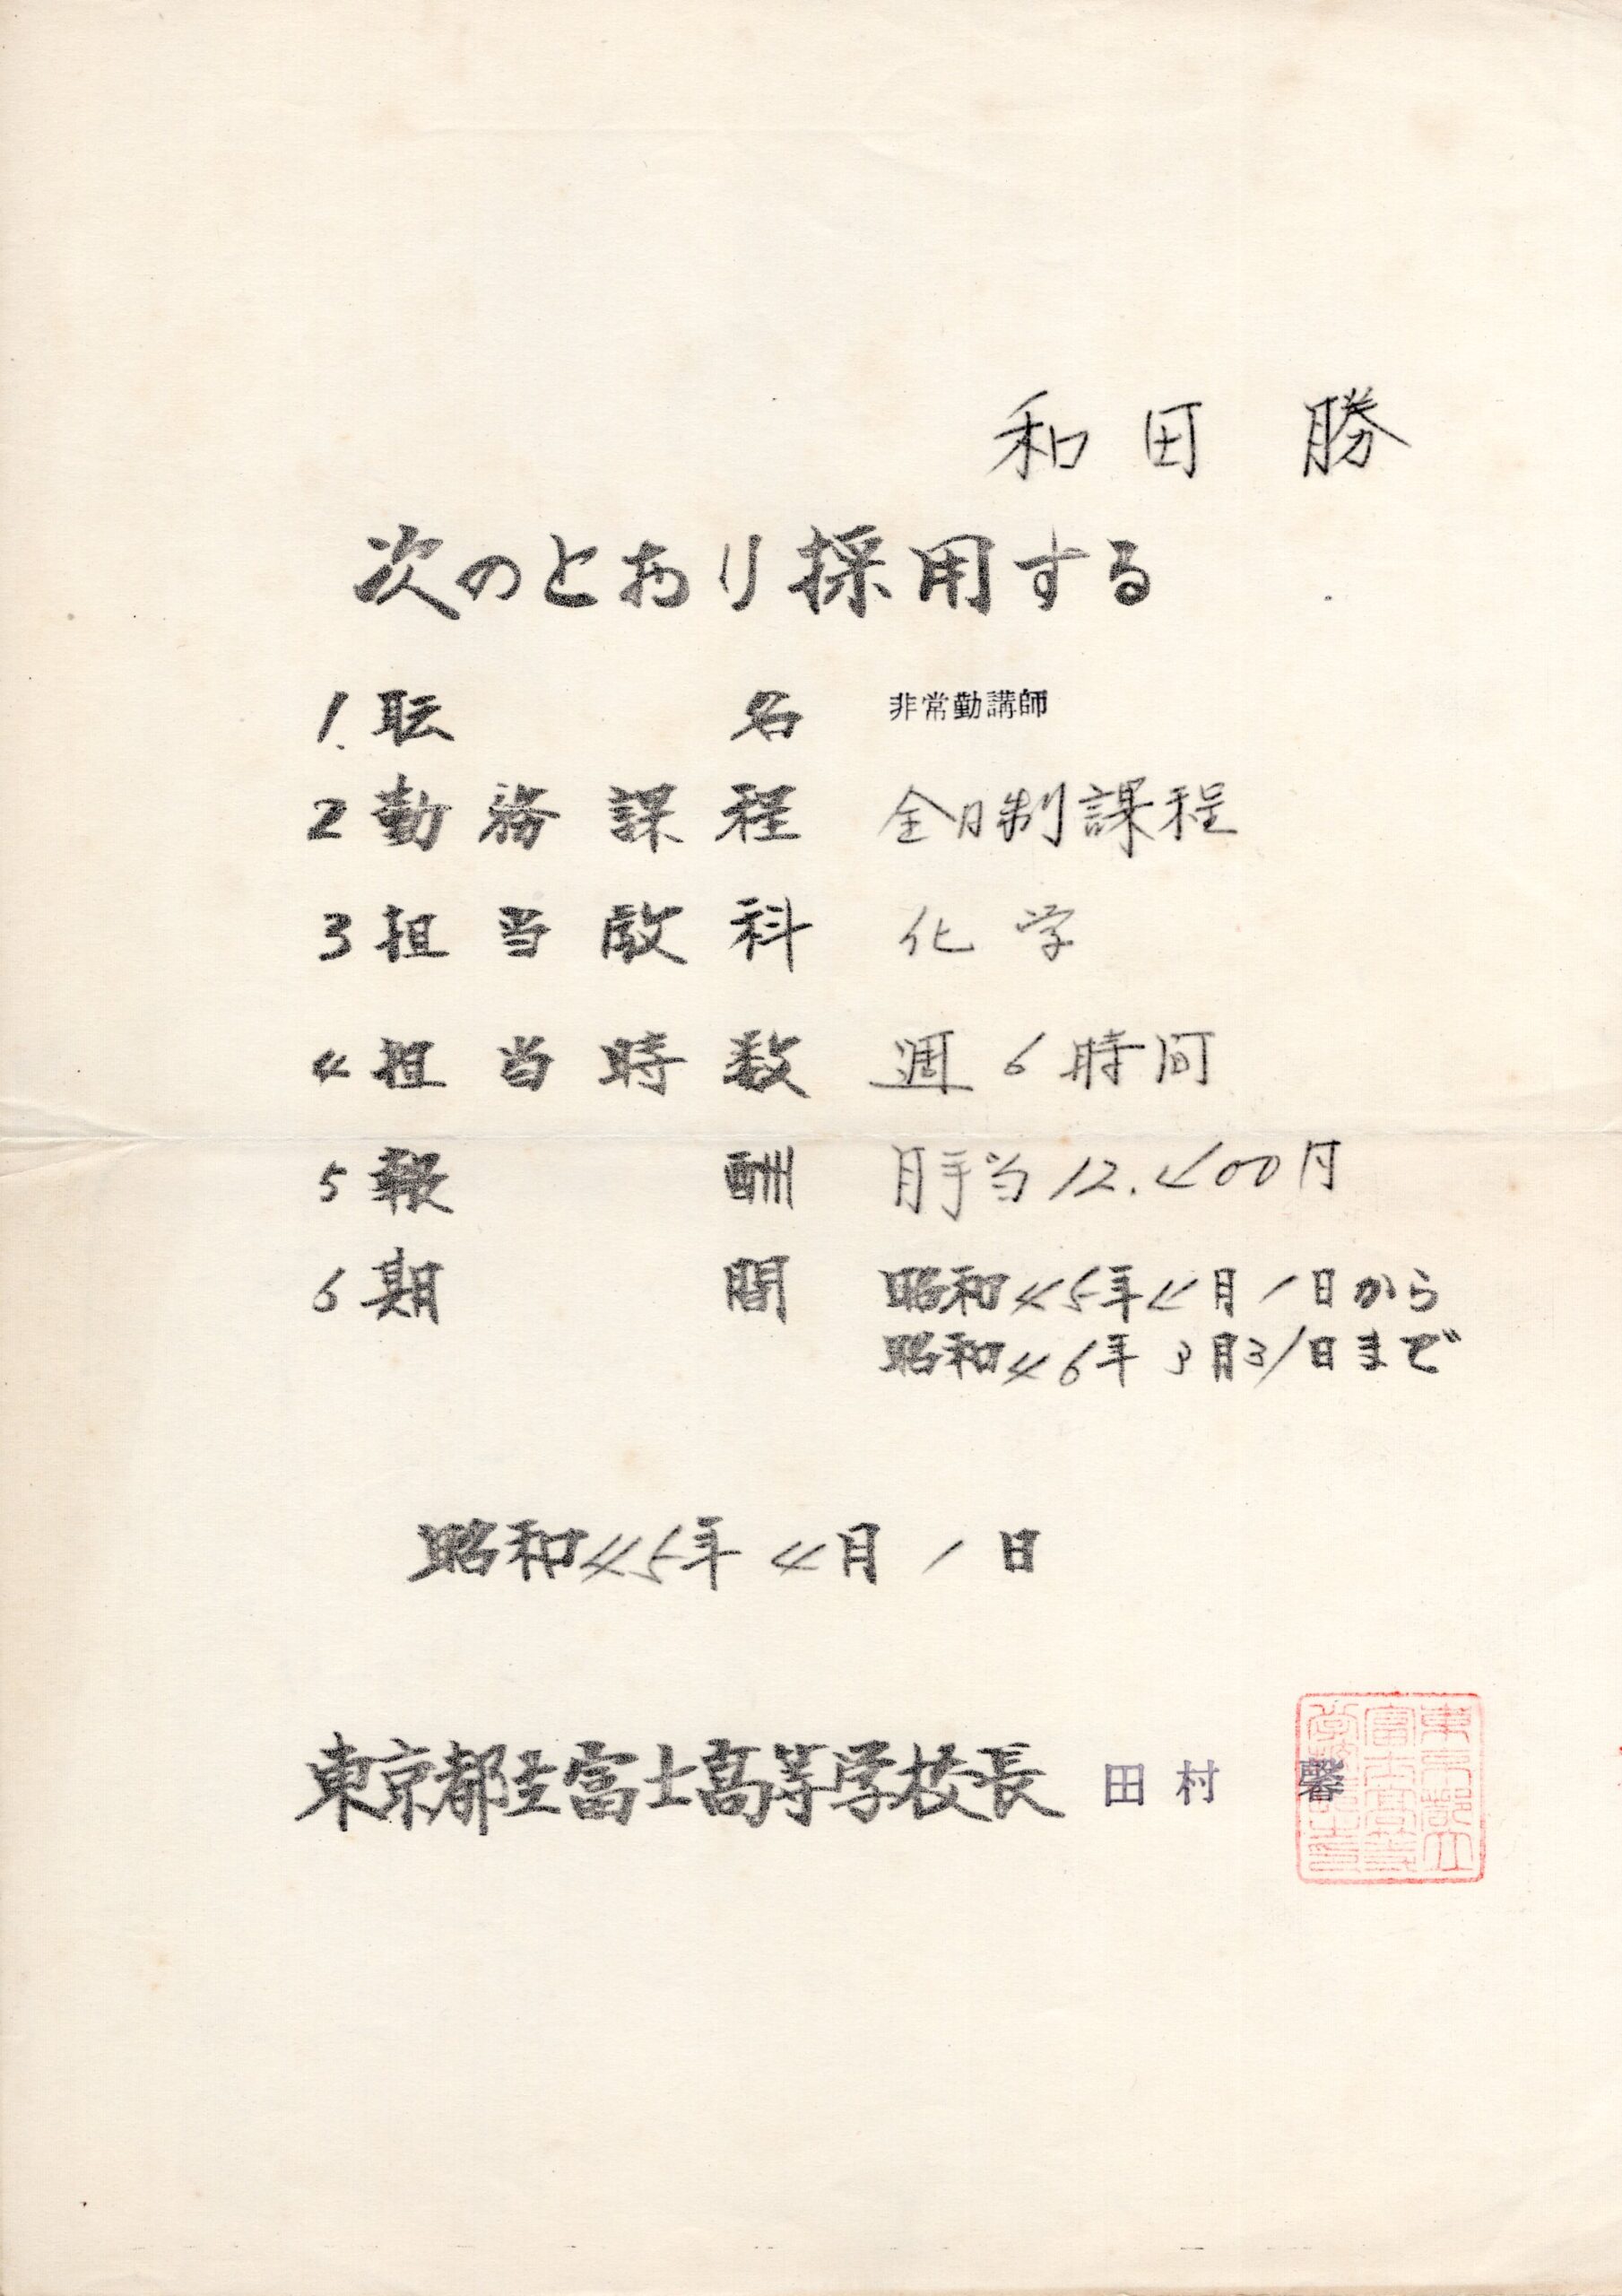 和田 勝
次のとおり採用する
1. 耺 名 非常勤講師
2 勤務課程 全日制課程
3 担当教科 化学
4 担当時数 週6時間
5 報酬 月手当12.400円
6 期間 昭和45年4月1日から
昭和46年3月31日まで
昭和45年4月1日
東京都立富士高等学校長 田村 馨